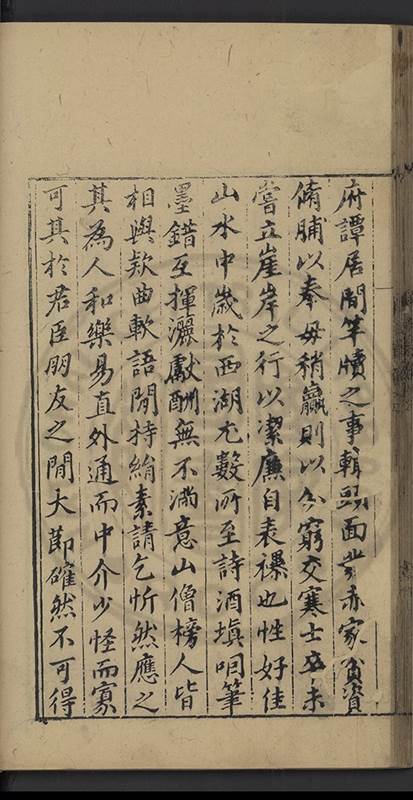 府譚居間竿牘之事輯頸面㳄赤家貧資
脩脯以奉母稍贏則以分窮交寒士卒未
嘗立崖岸之行以潔廉自表襮也性好佳
山水中歲於西湖尤數所至詩酒塡咽筆
墨錯互揮灑獻酬無不滿意山僧榜人皆
相與欵曲軟語閒持絹素請乞忻然應之
其為人和樂易直外通而中介少怪而寡
可其於君臣朋友之閒大節確然不可得